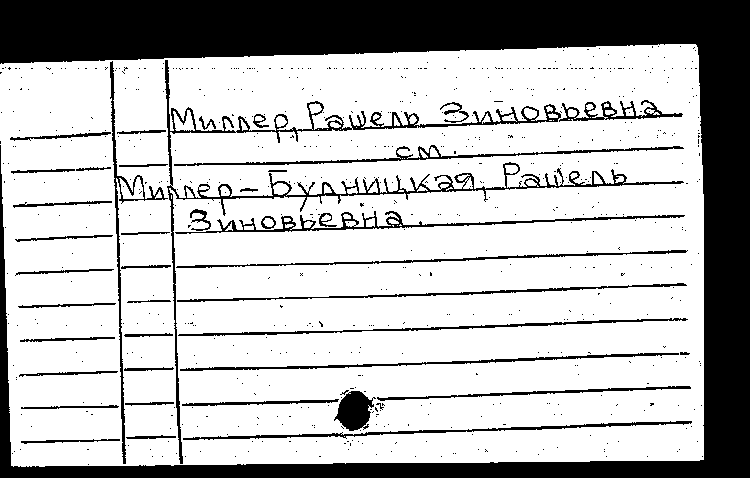 Миллер, Рашель Зиновьевна
см.
Миллер-Будницкая, Рашель
Зиновьевна.